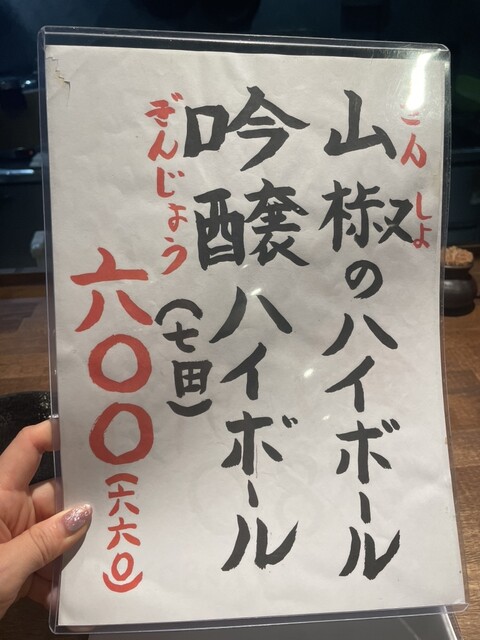 さんしょ
山椒のハイボール
ぎんじょう
吟醸ハイボール
(七田)
六〇〇(六六〇)